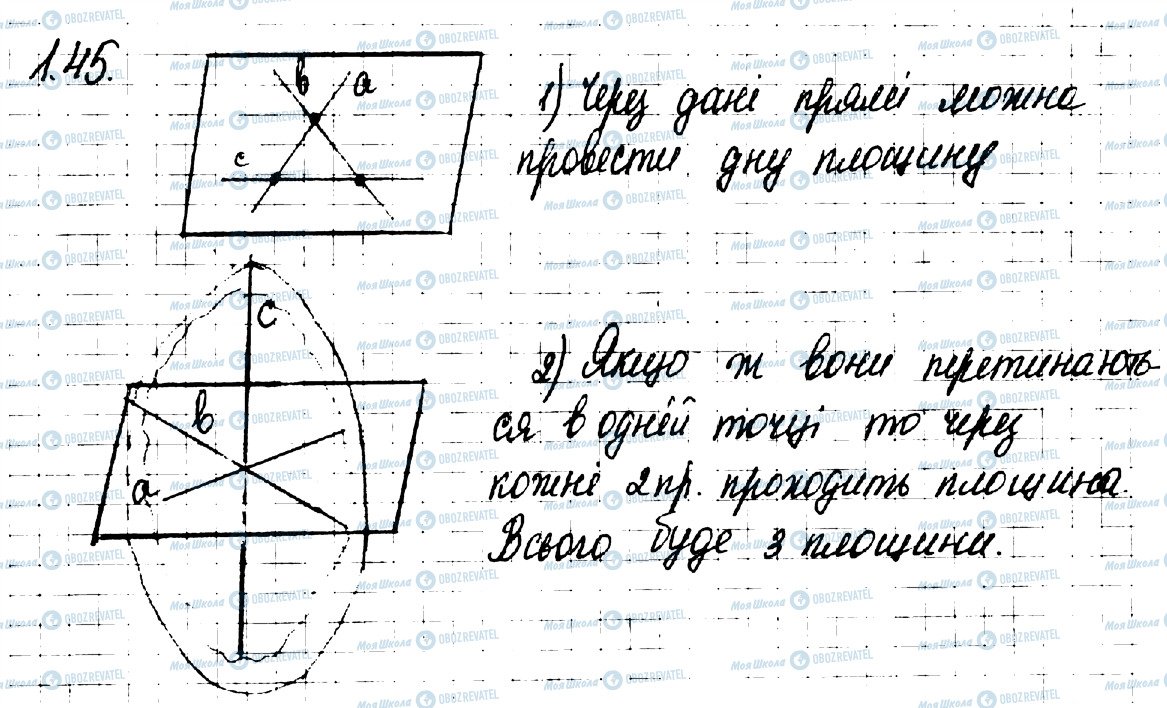 1.45.
b a
c
1) Через дані прямі можна
провести дну площину
c
b
a
2) Якщо ж вони перетинають-
ся в одней точці то через
кожні 2 пр. проходить площина.
Всього буде 3 площини.
МояШкола OBOZREVATEL